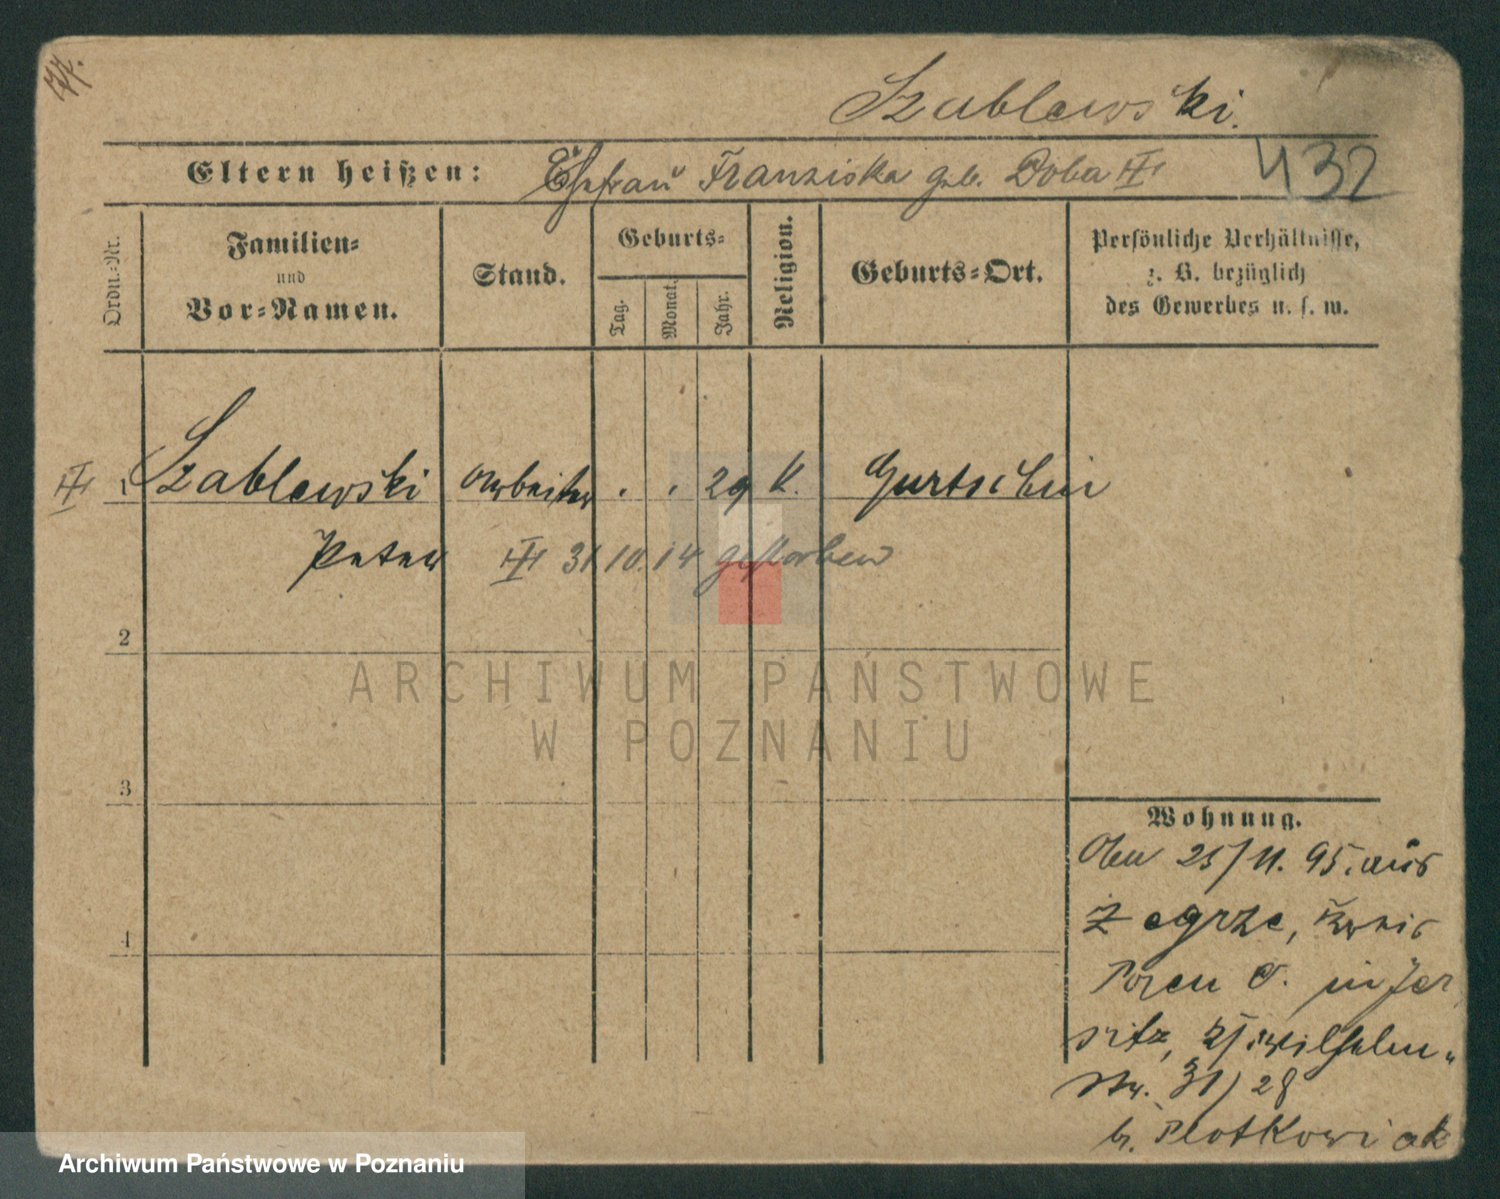 Szablewski.
Eltern heißen: Ehefrau Franziska geb. Doba III
432
Ordn.-Nr.
Familien-
und
Vor-Namen.
Stand.
Geburts-
Tag.
Monat.
Jahr.
Religion.
Geburts-Ort.
Persönliche Verhältnisse,
z. B. bezüglich
des Gewerbes u. s. w.
III 1 Szablewski Arbeiter . . 29 k. Gurtschin
Peter III 31.10.14 gestorben
2
3
4
ARCHIWUM PAŃSTWOWE
W POZNANIU
Wohnung.
25/11. 95. aus
Zegrze, Kreis
Posen O. in Jer
sitz, Wilhelm-
Str. 31/28
b. Plotkowiak
Archiwum Państwowe w Poznaniu